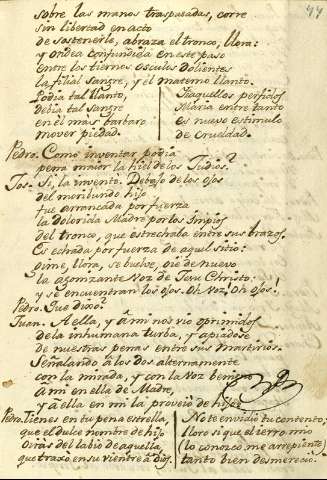 44
sobre las manos traspasadas, corre
sin libertad en acto
de sostenerle, abraza el tronco, llora:
y ondea confundida en ese paso
entre los tiernos osculos dolientes
la filial sangre, y el materno llanto.
Podia tal llanto,
debia tal sangre
en el más barbaro
mover piedad.
Aaquellos perfidos
Maria entre tanto
es nuevo estimulo
de crueldad.
Pedro. Como inventar podia
pena maior la hiel de los Judios?
Jos. Si, la inventó. Debajo de los ojos
del moribundo hijo
fue arrancada por fuerza
la dolorida Madre por los Impios
del tronco, que estrechaba entre sus brazos.
Es echada por fuerza de aquel sitio:
gime, llora, se buelve, oie de nuevo
la agonizante voz de Jesu Christo,
y se encuentran los ojos. Oh voz! Oh ojos!
Pedro. Que dixo?
Juan. A ella, y á mi nos vio oprimidos
de la inhumana turba, y apiadose
de nuestras penas entre sus martirios.
Señalando á los dos alternamente
con la mirada, y con la voz benigna
á mi en ella de Madre,
y á ella en mi la proveio de hijo.
Pedro. Tienes en tu pena estrella,
que el dulce nombre de hijo
oirás del labio de aquella,
que traxo en su vientre á Dios.
No te envidio tu contento;
lloro si que al ierro mio
(lo conozco, me arrepiento)
tanto bien desmereció.